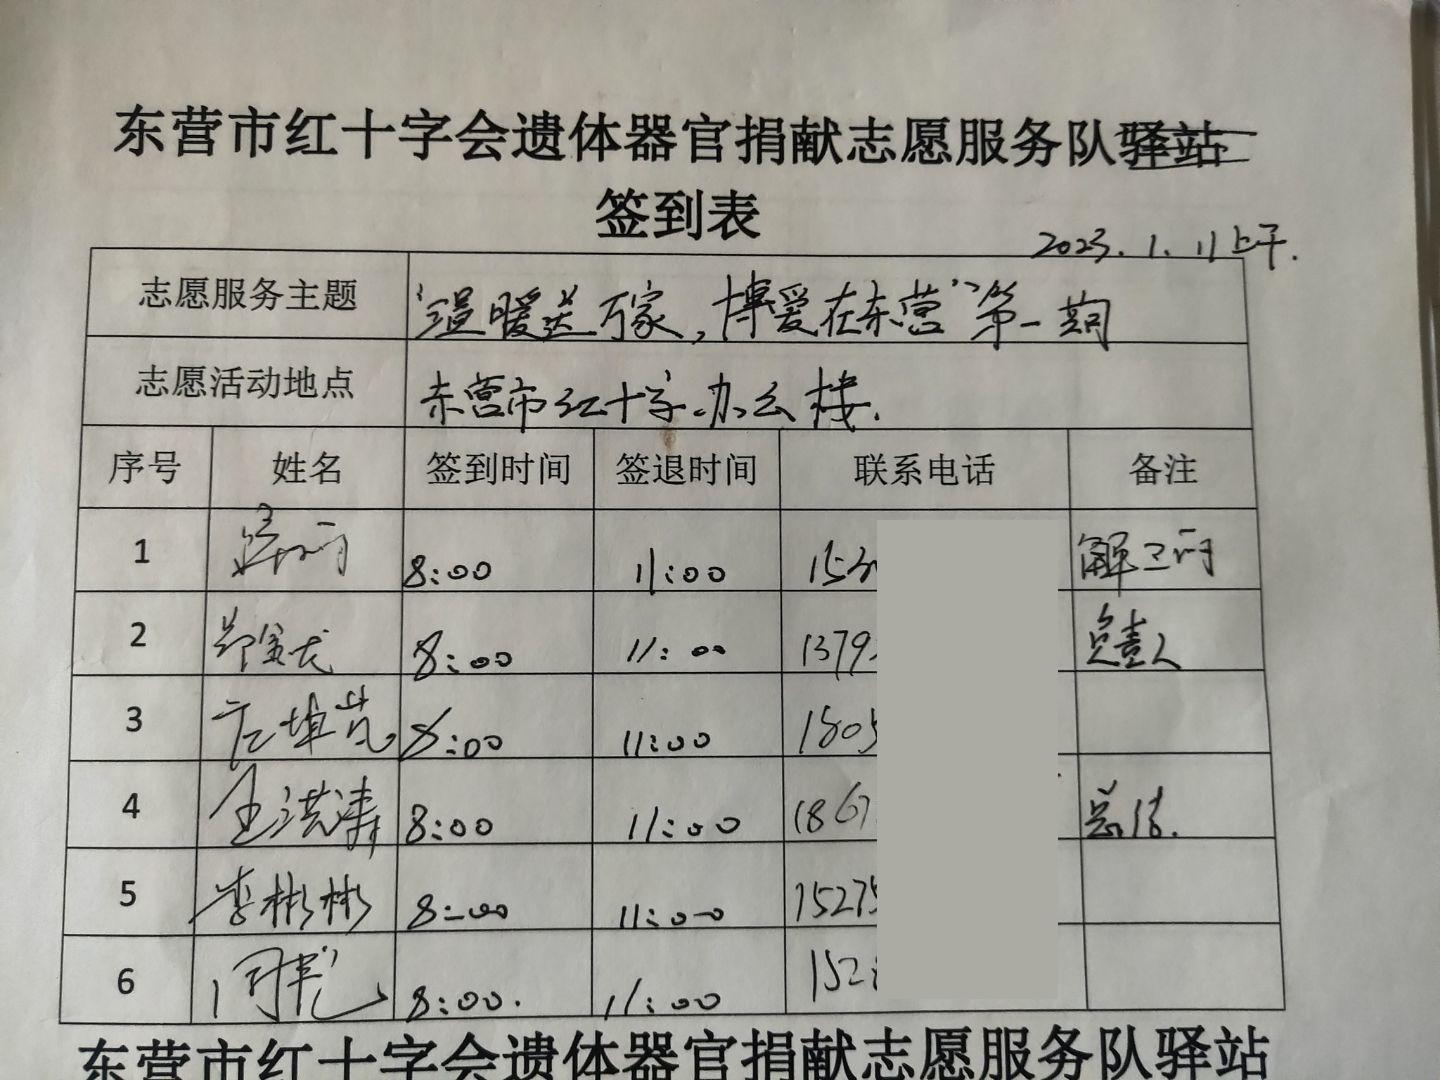 东营市红十字会遗体器官捐献志愿服务队驿站
签到表
2023.1.11上午.
志愿服务主题 “温暖送万家,博爱在东营”第一期
志愿活动地点 东营市红十字办公楼.
序号 姓名 签到时间 签退时间 联系电话 备注
1 8:00 11:00 153
2 8:00 11:00 1379 负责人
3 8:00 11:00 1805
4 王洪涛 8:00 11:00 1867 总结.
5 李彬彬 8:00 11:00 15275
6 8:00. 11:00 152
东营市红十字会遗体器官捐献志愿服务队驿站